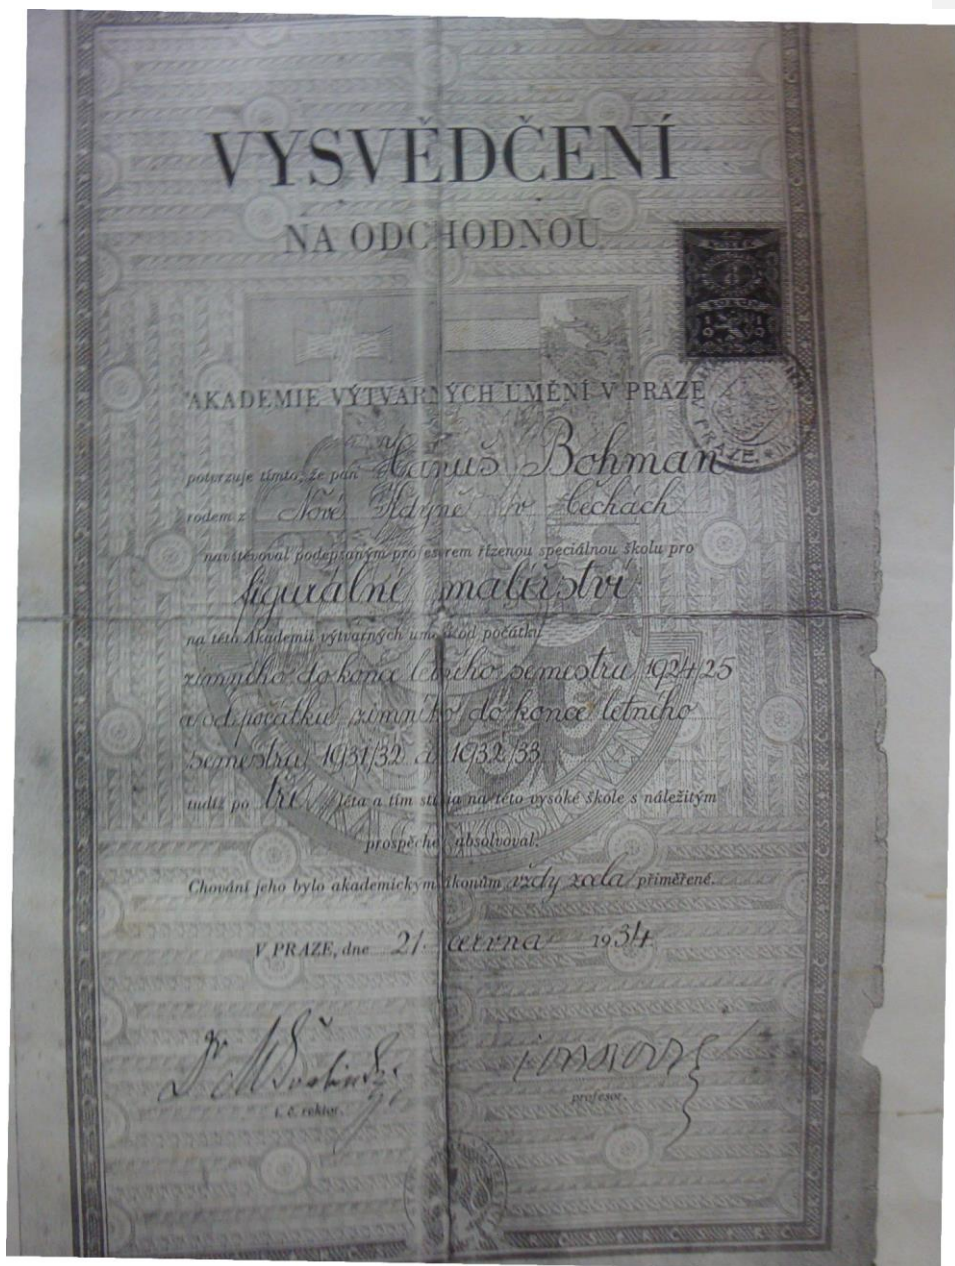 VYSVĚDČENÍ
NA ODCHODNOU
AKADEMIE VÝTVARNÝCH UMĚNÍ V PRAZE
potvrzuje tímto, že pan Hanuš Bohman
rodem z Nové Kdyně v Čechách
navštěvoval podepsaným profesorem řízenou speciálnou školu pro
figurální malířství
na této Akademii výtvarných umění od počátku
zimního do konce letního semestru 1924/25
a od počátku zimního do konce letního
semestru 1931/32 a 1932/33
tudíž po tři léta a tím studia na této vysoké škole s náležitým
prospěchem absolvoval.
Chování jeho bylo akademickým zákonům vždy zcela přiměřené.
V PRAZE, dne 21. června 1934
t. č. rektor.
profesor.